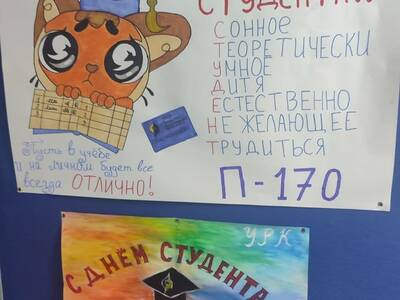 СТУДЕНТ
СОННОЕ
ТЕОРЕТИЧЕСКИ
УМНОЕ
ДИТЯ
ЕСТЕСТВЕННО
НЕ ЖЕЛАЮЩЕЕ
ТРУДИТЬСЯ
Пусть в учёбе
и на личном будет все
всегда ОТЛИЧНО!
П-170
УРК
С ДНЁМ СТУДЕНТА